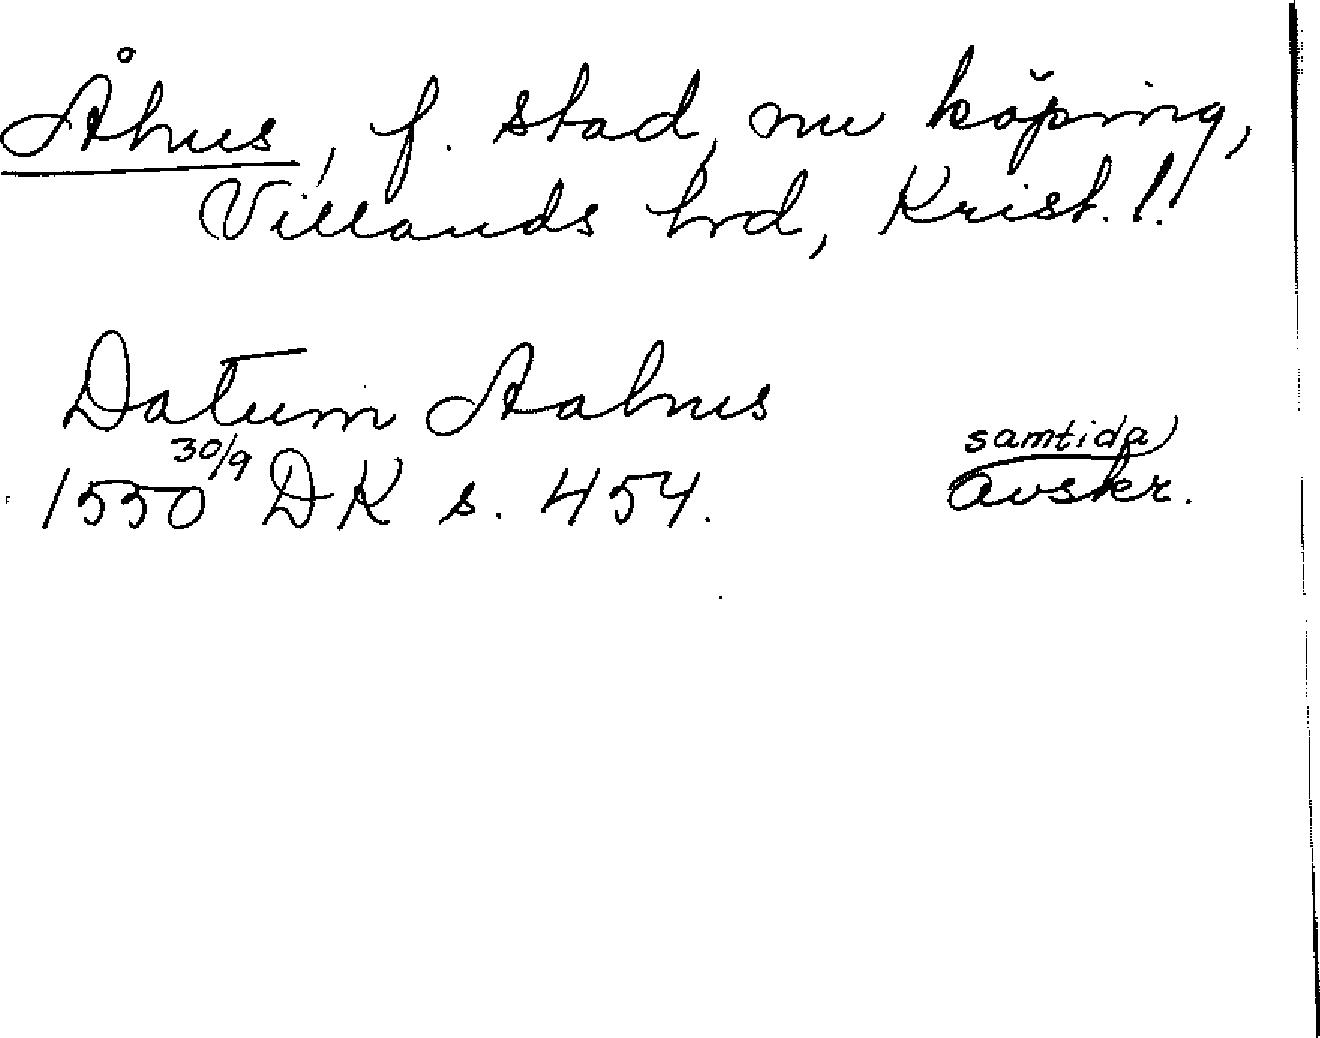 Åhus, f. stad, nu köping,
Villands hrd, Krist. l.
Datum Aahus
1550 30/9 DK s. 454.
samtida
avskr.